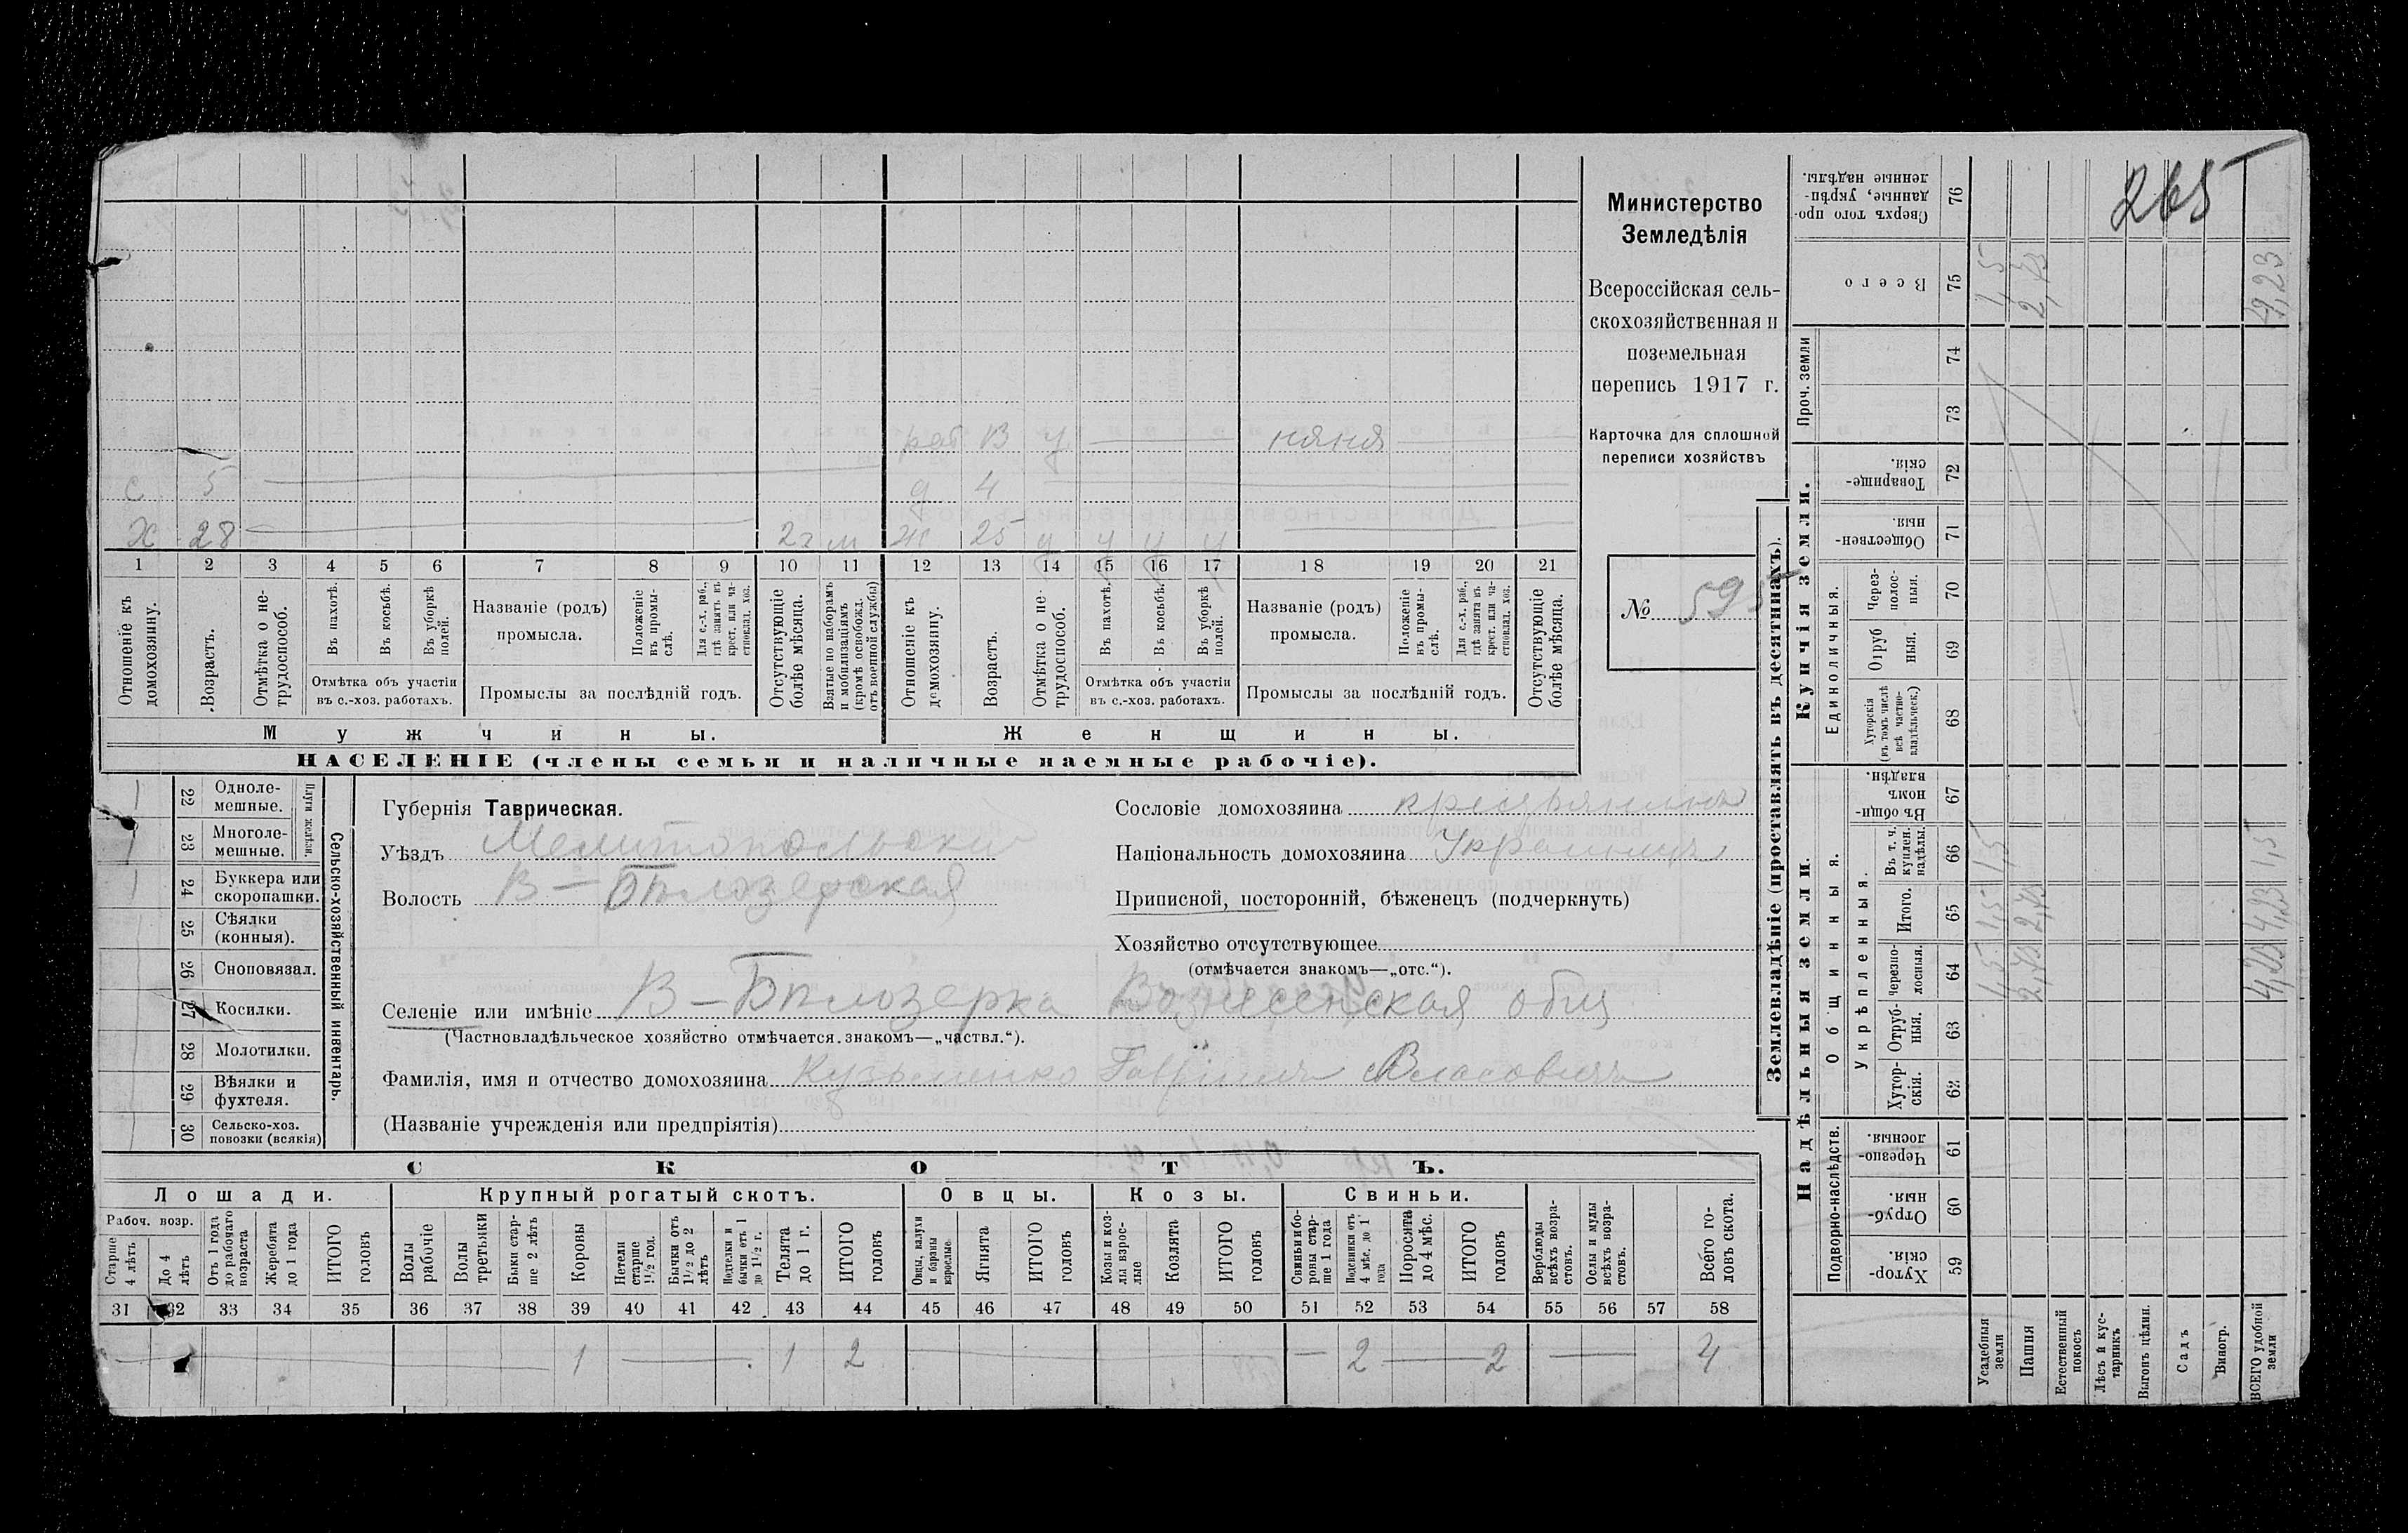 265
Министерство
Земледѣлія
Всероссійская сель-
скохозяйственная и
поземельная
перепись 1917 г.
Карточка для сплошной
переписи хозяйствъ
№ 595
раб В у няня
с 5 д 4
Х 28 2 г м ж 25 у у у у
1 2 3 4 5 6 7 8 9 10 11 12 13 14 15 16 17 18 19 20 21
Отношеніе къ домохозяину.
Возрастъ.
Отмѣтка о не-трудоспособ.
Въ пахотѣ.
Въ косьбѣ.
Въ уборкѣ полей.
Отмѣтка объ участіи
въ с.-хоз. работахъ.
Названіе (родъ)
промысла.
Положеніе въ промы-слѣ.
Для с.-х. раб., гдѣ занятъ въ крест. или ча-стновлад. хоз.
Промыслы за послѣдній годъ.
Отсутствующіе болѣе мѣсяца.
Взятые по наборамъ и мобилизаціямъ (кромѣ освобожд. отъ военной службы)
Отношеніе къ домохозяину.
Возрастъ.
Отмѣтка о не-трудоспособ.
Въ пахотѣ.
Въ косьбѣ.
Въ уборкѣ полей.
Отмѣтка объ участіи
въ с.-хоз. работахъ.
Названіе (родъ)
промысла.
Положеніе въ промы-слѣ.
Для с.-х. раб., гдѣ занята въ крест. или ча-стновлад. хоз.
Промыслы за послѣдній годъ.
Отсутствующіе болѣе мѣсяца.
Мужчины. Женщины.
НАСЕЛЕНІЕ (члены семьи и наличные наемные рабочіе).
Сельско-хозяйственный инвентарь.
Плуги желѣзн.
22 Одноле-мешные.
23 Многоле-мешные.
24 Буккера или скоропашки.
25 Сѣялки (конныя).
26 Сноповязал.
27 Косилки.
28 Молотилки.
29 Вѣялки и фухтеля.
30 Сельско-хоз. повозки (всякія)
Губернія Таврическая.
Уѣздъ Мелитопольски
Волость В-Бѣлозерская
Сословіе домохозяина крестьянинъ
Національность домохозяина Украинец
Приписной, посторонній, бѣженецъ (подчеркнуть)
Хозяйство отсутствующее
(отмѣчается знакомъ—„отс.“).
Селеніе или имѣніе В-Бѣлозерка Вознесенская общ
(Частновладѣльческое хозяйство отмѣчается знакомъ—„частвл.“).
Фамилія, имя и отчество домохозяина Кузьменко Гавріилъ Власовичъ
(Названіе учрежденія или предпріятія)
СКОТЪ.
Лошади. Крупный рогатый скотъ. Овцы. Козы. Свиньи.
Рабоч. возр.
Старше 4 лѣтъ
До 4 лѣтъ
Отъ 1 года до рабочаго возраста
Жеребята до 1 года
ИТОГО головъ
Волы рабочіе
Волы третьяки
Быки стар-ше 2 лѣтъ
Коровы
Нетели старше 1½ год.
Бычки отъ 1½ до 2 лѣтъ
Подтелки и бычки отъ 1 до 1½ г.
Телята до 1 г.
ИТОГО головъ
Овцы, валухи и бараны взрослые
Ягнята
ИТОГО головъ
Козы и коз-лы взрос-лые
Козлята
ИТОГО головъ
Свиньи и бо-ровы стар-ше 1 года
Подсвинки отъ 4 мѣс. до 1 года
Поросята до 4 мѣс.
ИТОГО головъ
Верблюды всѣхъ возра-стовъ.
Ослы и мулы всѣхъ возра-стовъ.
Всего го-ловъ скота.
31 32 33 34 35 36 37 38 39 40 41 42 43 44 45 46 47 48 49 50 51 52 53 54 55 56 57 58
1 1 2 2 2 4
Землевладѣніе (проставлять въ десятинахъ).
Надѣльныя земли. Купчія земли.
Подворно-наслѣдств.
Общинныя.
Укрѣпленныя.
Единоличныя.
Проч. земли
Хутор-скія. 59
Отруб-ныя. 60
Черезпо-лосныя. 61
Хутор-скія. 62
Отруб-ныя. 63
Черезпо-лосныя. 64
Итого. 65
Въ т. ч. куплен. надѣлы. 66
Въ общин-номъ владѣн. 67
Хуторскія (въ томъ числѣ всѣ частно-владѣльческ.) 68
Отруб ныя. 69
Через-полос-ныя. 70
Обществен-ныя. 71
Товарище-скія. 72
73
74
Всего 75
Сверхъ того про-данные, укрѣп-ленные надѣлы. 76
Усадебныя земли 1,5 1,5 1,5 1,5
Пашня 2,73 2,73 2,73
Естественный покосъ
Лѣсъ и кус-тарникъ
Выгонъ цѣлин.
Садъ
Виногр.
ВСЕГО удобной земли 4,23 4,23 1,5 4,23